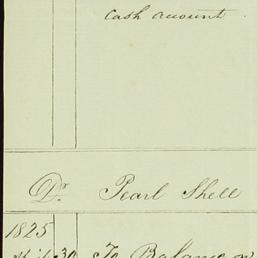 cash account.
Dr Pearl Shell
1825
30 To Balance